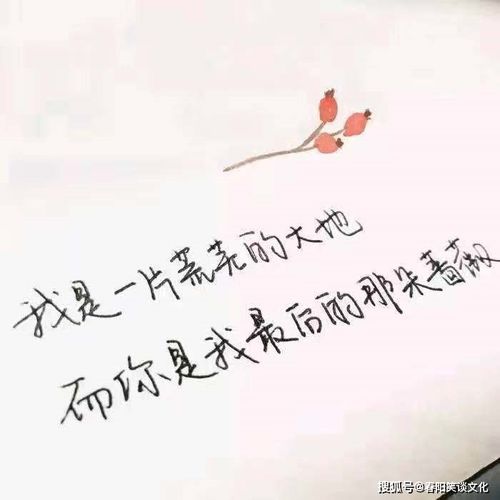 我是一片荒芜的大地
而你是我最后的那朵蔷薇
搜狐号@春阳笑谈文化